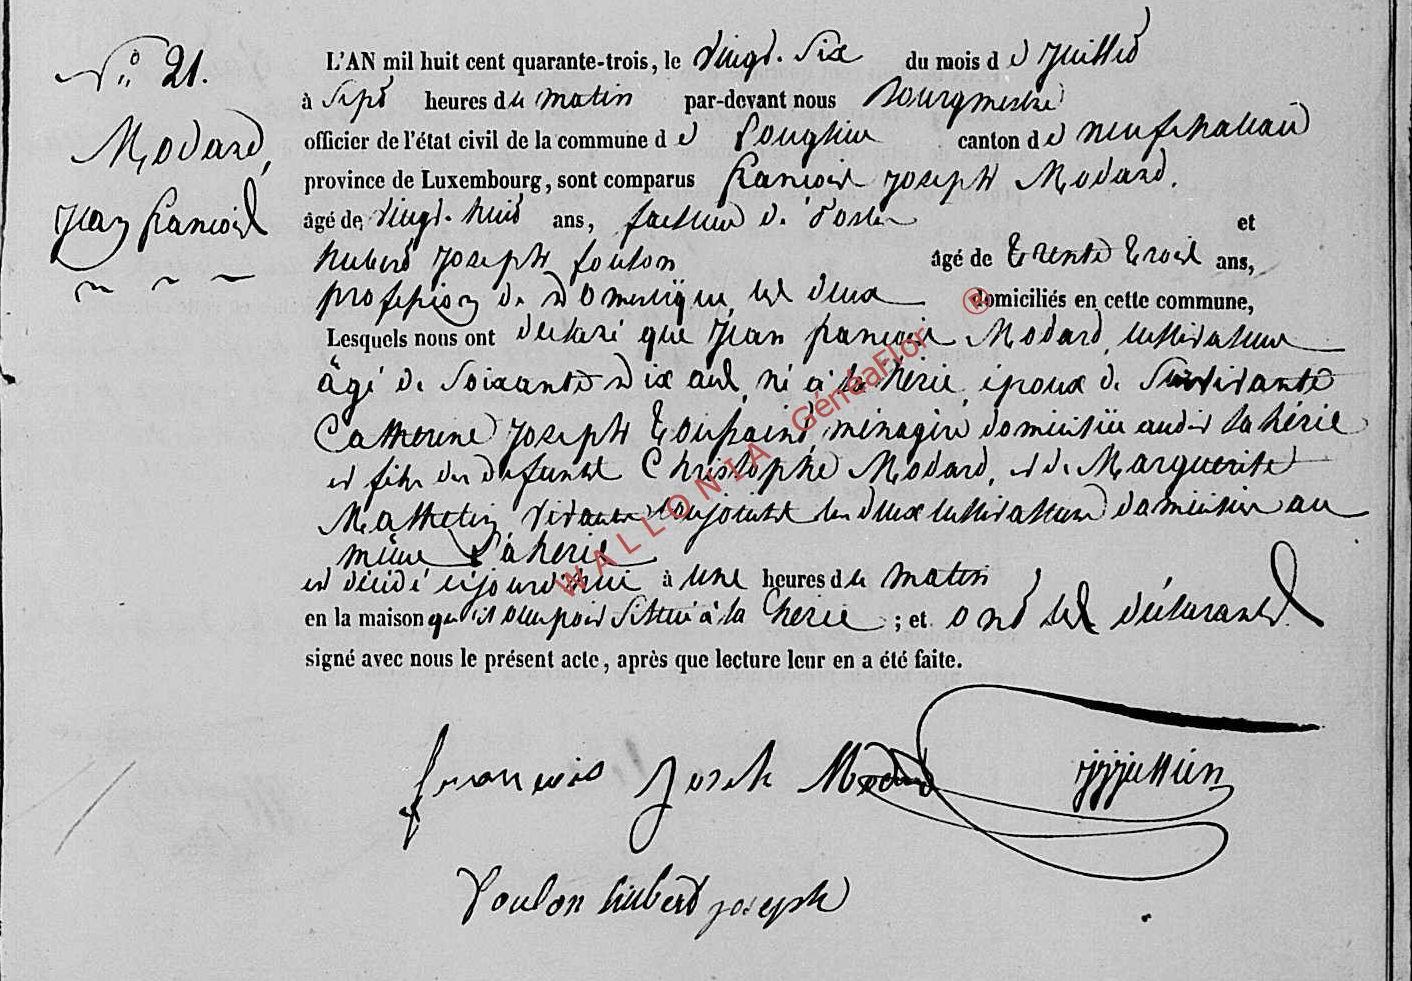 N.° 21.
Modard,
Jean françois
L'AN mil huit cent quarante-trois, le vingt-six du mois d e Juillet
à sept heures d u matin par-devant nous Bourgmestre
officier de l'état civil de la commune d e Longlier canton d e neufchateau
province de Luxembourg, sont comparus françois Joseph Modard,
âgé de vingt-huit ans, facteur de Poste et
hubert Joseph foulon âgé de trente trois ans,
profession de domestique, les deux domiciliés en cette commune,
Lesquels nous ont declaré que Jean françois Modard, cultivateur
âgé de soixante dix ans, né à la hérie, époux de survivante
Catherine Joseph Toussaint, ménagère domiciliée audit la hérie
et fils des defunts Christophe Modard, et de Marguerite
Mathelin, vivants conjoints les deux cultivateurs domiciliés au
même La hérie
est décédé cejourd'hui à une heures d u matin
en la maison qu'il occupoit située à la hérie ; et ont les déclarants
signé avec nous le présent acte, après que lecture leur en a été faite.
françois Joseph Modard
foulon hubert joseph
WALLONIA GénéaFlor ®